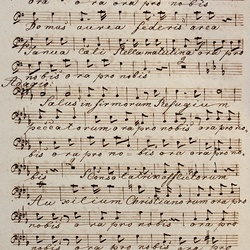 ora ora ora pro nobis
Domus aurea federis arca
Janua cæli Stella matutina ora pro
nobis ora pro nobis
Adagio
Salus infirmorum Refugium
peccatorum ora pro nobis ora pro no
bis ora pro nobis ora pro no
bis Consolatrix afflictorum
Auxilium Christianorum ora pro
nobis ora pro nobis ora pro